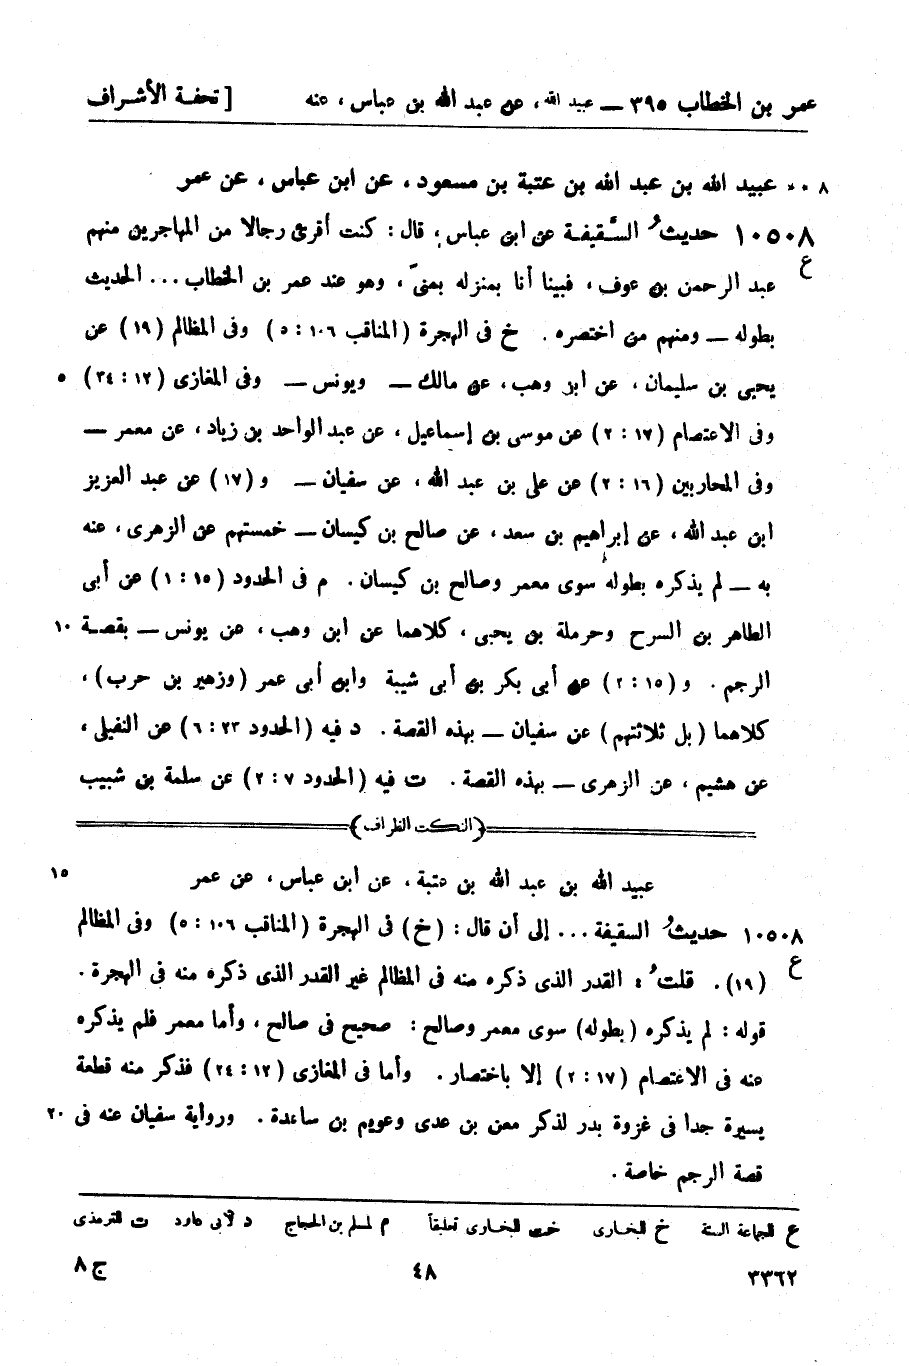 عمر بن الخطاب ٣٩٥ — عبيد الله ، عن عبد الله بن عباس ، عنه [ تحفة الأشراف
٨٠٠ عبيد الله بن عبد الله بن عتبة بن مسعود ، عن ابن عباس ، عن عمر
١٠٥٠٨ حديثُ السَّقيفة عن ابن عباس ، قال : كنت أقرئ رجالا من المهاجرين منهم
ع
عبد الرحمن بن عوف ، فبينا أنا بمنزله بمنىّ ، وهو عند عمر بن الخطاب ... الحديث
بطوله — ومنهم من اختصره . خ فى الهجرة (المناقب ١٠٦ : ٥) وفى المظالم (١٩) عن
يحيى بن سليمان ، عن ابن وهب ، عن مالك — ويونس — وفى المغازى (١٢ : ٣٤) ٥
وفى الاعتصام (١٧ : ٢) عن موسى بن إسماعيل ، عن عبد الواحد بن زياد ، عن معمر —
وفى المحاربين (١٦ : ٢) عن على بن عبد الله ، عن سفيان — و (١٧) عن عبد العزيز
ابن عبد الله ، عن إبراهيم بن سعد ، عن صالح بن كيسان — خمستهم عن الزهرى ، عنه
به — لم يذكره بطوله سوى معمر وصالح بن كيسان . م فى الحدود (١٥ : ١) عن أبى
الطاهر بن السرح وحرملة بن يحيى ، كلاهما عن ابن وهب ، عن يونس — بقصة ١٠
الرجم . و (١٥ : ٢) عن أبى بكر بن أبى شيبة وابن أبى عمر (وزهير بن حرب) ،
كلاهما (بل ثلاثتهم) عن سفيان — بهذه القصة . د فيه (الحدود ٢٣ : ٦) عن النفيلى ،
عن هشيم ، عن الزهرى — بهذه القصة . ت فيه (الحدود ٧ : ٢) عن سلمة بن شبيب
(النكت الظراف)
عبيد الله بن عبد الله بن عتبة ، عن ابن عباس ، عن عمر ١٥
١٠٥٠٨ حديثُ السقيفة ... إلى أن قال : (خ) فى الهجرة (المناقب ١٠٦ : ٥) وفى المظالم
ع
(١٩) . قلتُ : القدر الذى ذكره منه فى المظالم غير القدر الذى ذكره منه فى الهجرة .
قوله : لم يذكره (بطوله) سوى معمر وصالح : صحيح فى صالح ، وأما معمر فلم يذكره
عنه فى الاعتصام (١٧ : ٢) إلا باختصار . وأما فى المغازى (١٢ : ٢٤) فذكر منه قطعة
يسيرة جدا فى غزوة بدر لذكر معن بن عدى وعويم بن ساعدة . ورواية سفيان عنه فى ٢٠
قصة الرجم خاصة .
ع للجماعة الستة خ للبخارى خت للبخارى تعليقاً م لمسلم بن الحجاج د لأبى داود ت للترمذى
٣٣٦٢ ٤٨ ج ٨